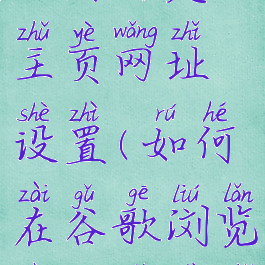 zhǔ yè wǎng zhǐ
主页网址
shè zhì rú hé
设置(如何
zài gǔ gē liú lǎn
在谷歌浏览